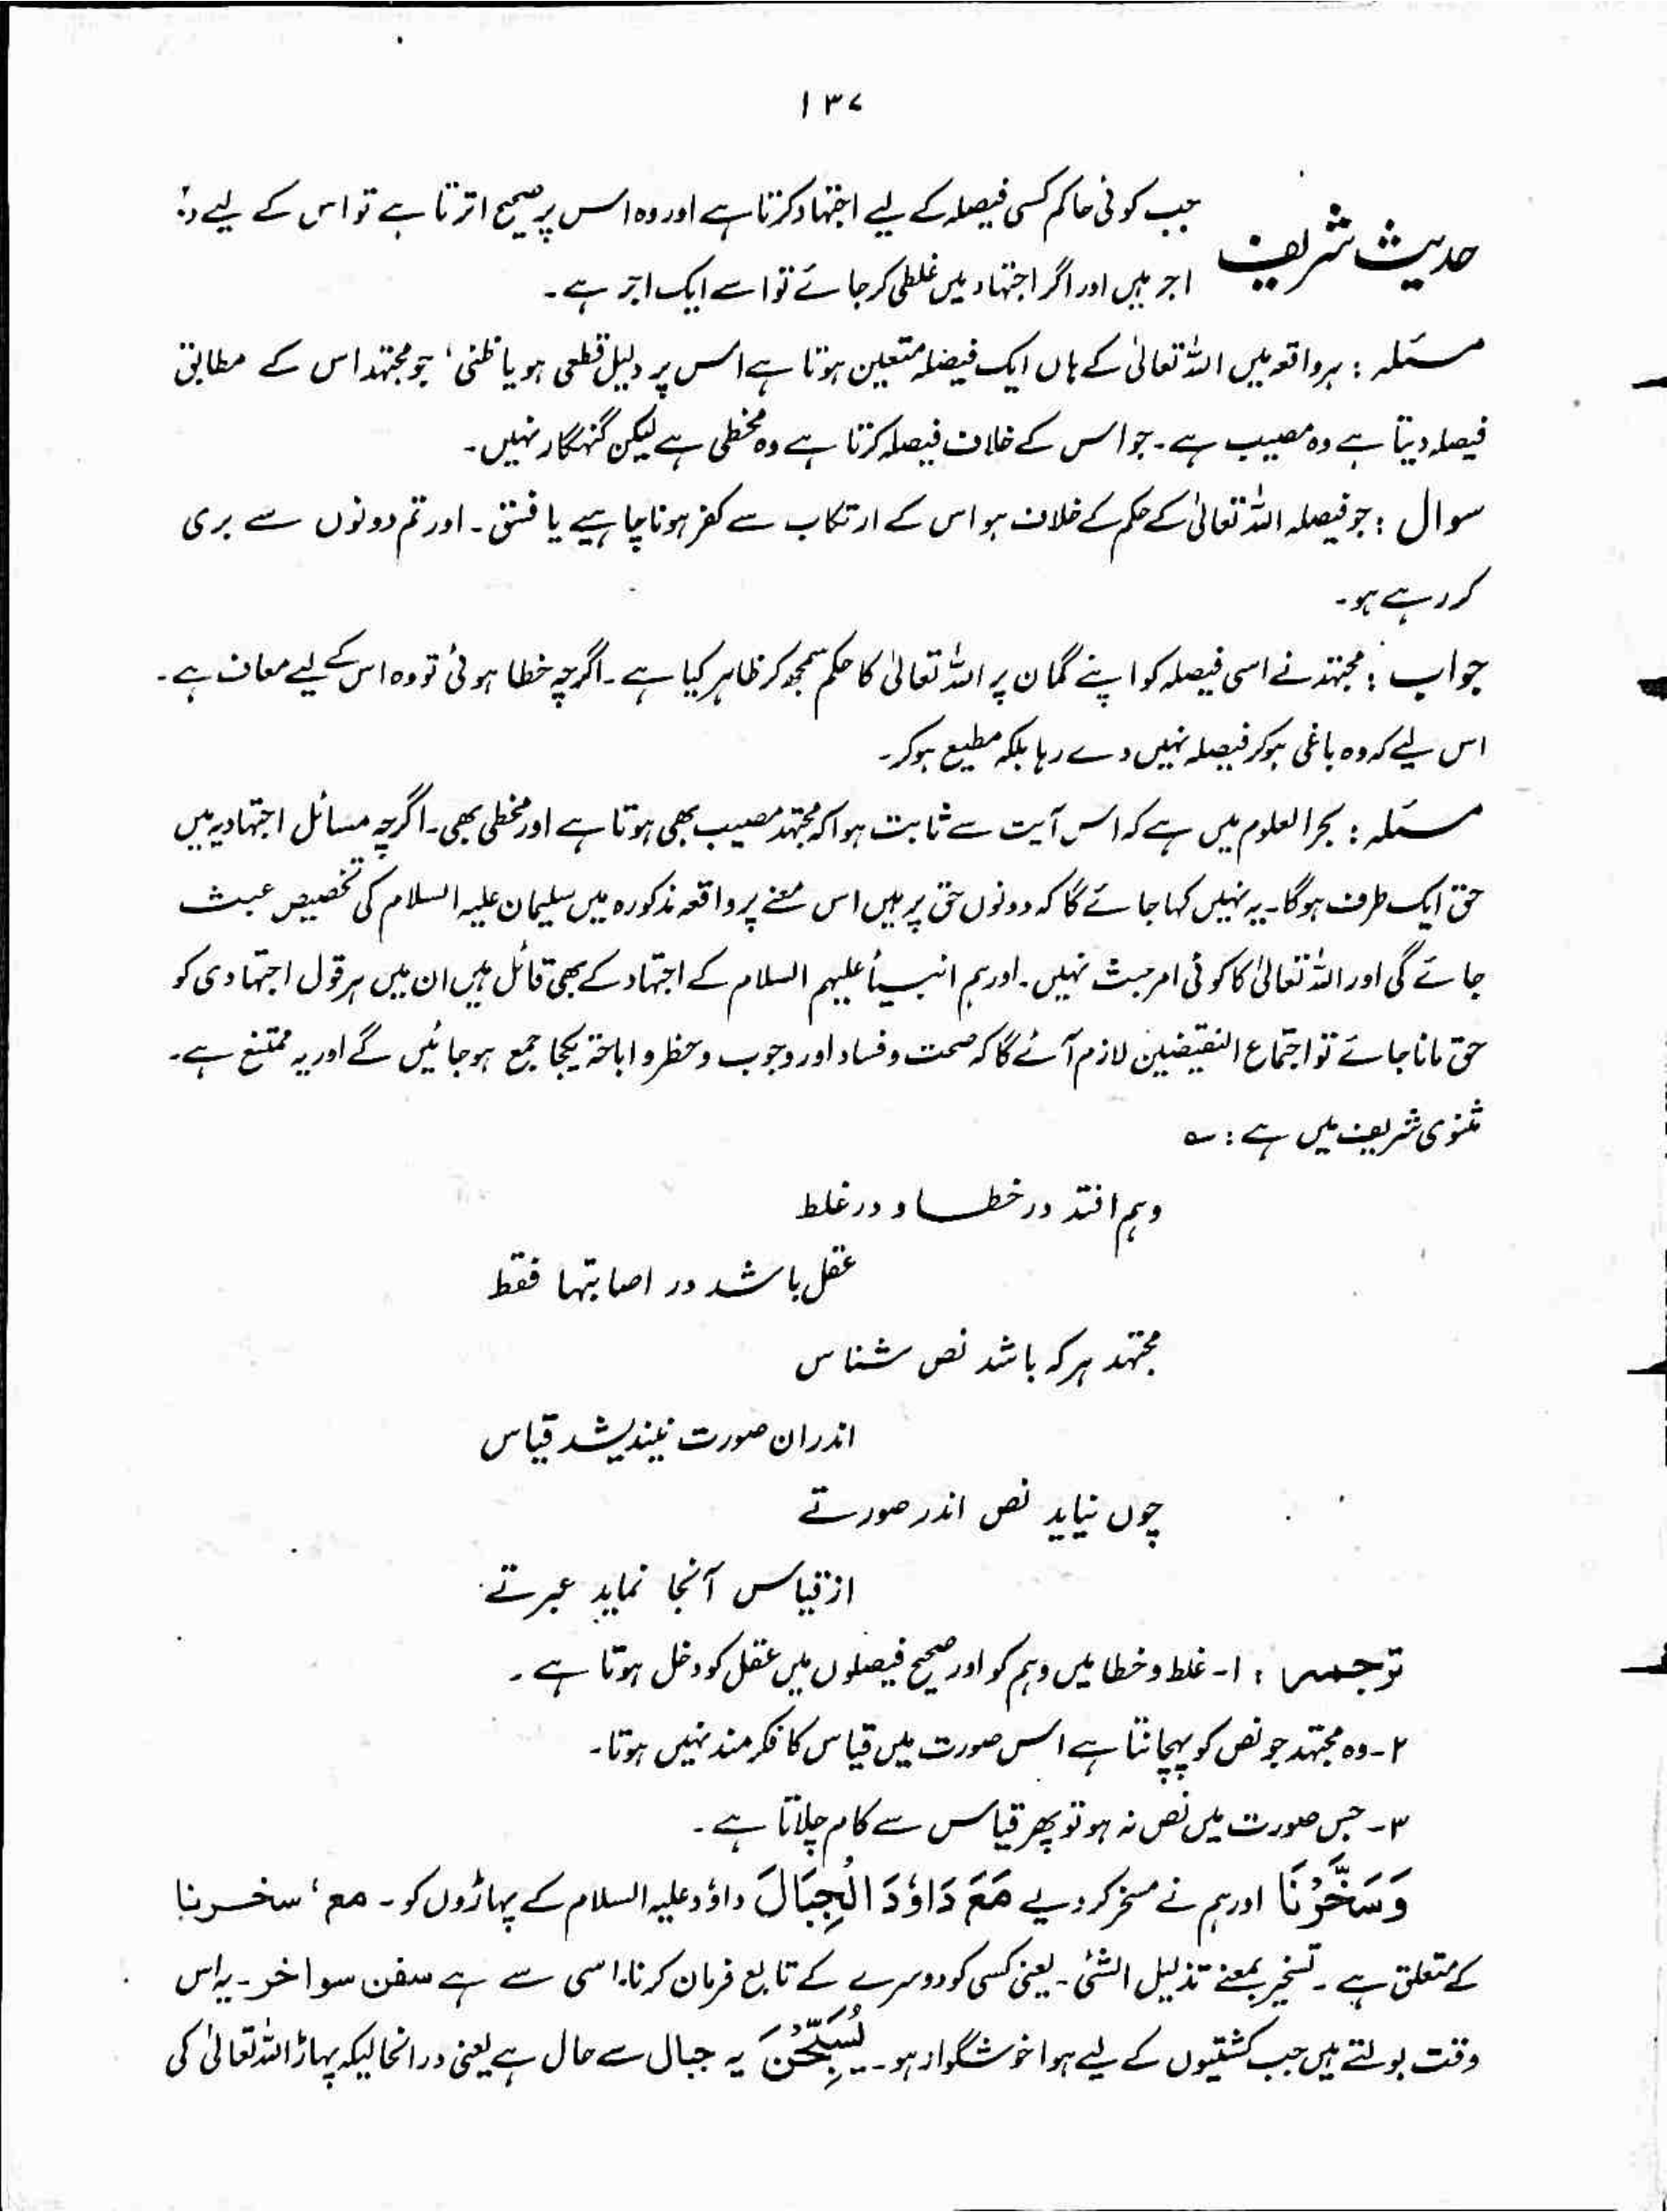 ۱۳۷
حدیث شریف جب کوئی حاکم کسی فیصلہ کے لیے اجتہاد کرتا ہے اور وہ اس پر صحیح اترتا ہے تو اس کے لیے دو
اجر ہیں اور اگر اجتہاد میں غلطی کر جائے تو اسے ایک اجر ہے۔
مسئلہ : ہر واقعہ میں اللہ تعالیٰ کے ہاں ایک فیصلہ متعین ہوتا ہے اس پر دلیل قطعی ہو یا ظنی، جو مجتہد اس کے مطابق
فیصلہ دیتا ہے وہ مصیب ہے۔ جو اس کے خلاف فیصلہ کرتا ہے وہ مخطی ہے لیکن گنہگار نہیں۔
سوال : جو فیصلہ اللہ تعالیٰ کے حکم کے خلاف ہو اس کے ارتکاب سے کفر ہونا چاہیے یا فسق۔ اور تم دونوں سے بری
کر رہے ہو۔
جواب : مجتہد نے اسی فیصلہ کو اپنے گمان پر اللہ تعالیٰ کا حکم سمجھ کر ظاہر کیا ہے۔ اگرچہ خطا ہوئی تو وہ اس کے لیے معاف ہے۔
اس لیے کہ وہ باغی ہو کر فیصلہ نہیں دے رہا بلکہ مطیع ہو کر۔
مسئلہ : بحر العلوم میں ہے کہ اس آیت سے ثابت ہوا کہ مجتہد مصیب بھی ہوتا ہے اور مخطی بھی۔ اگرچہ مسائل اجتہادیہ میں
حق ایک طرف ہوگا۔ یہ نہیں کہا جائے گا کہ دونوں حق پر ہیں اس معنے پر واقعہ مذکورہ میں سلیمان علیہ السلام کی تخصیص عبث
جائے گی اور اللہ تعالیٰ کا کوئی امر عبث نہیں۔ اور ہم انبیاء علیہم السلام کے اجتہاد کے بھی قائل ہیں ان میں ہر قول اجتہادی کو
حق مانا جائے تو اجتماع النقیضین لازم آئے گا کہ صحت و فساد اور وجوب و حظر و اباحۃ یکجا جمع ہو جائیں گے اور یہ ممتنع ہے۔
مثنوی شریف میں ہے : ؎
وہم افتد در خطا و در غلط
عقل باشد در اصابتہا فقط
مجتہد ہر کہ باشد نص شناس
اندران صورت نیندیشد قیاس
چوں نیاید نص اندر صورتے
از قیاس آنجا نماید عبرتے
ترجمہ : ۱۔ غلط و خطا میں وہم کو اور صحیح فیصلوں میں عقل کو دخل ہوتا ہے۔
۲۔ وہ مجتہد جو نص کو پہچانتا ہے اس صورت میں قیاس کا فکر مند نہیں ہوتا۔
۳۔ جس صورت میں نص نہ ہو تو پھر قیاس سے کام چلاتا ہے۔
وَسَخَّرْنَا اور ہم نے مسخر کر دیے مَعَ دَاوٗدَ الْجِبَالَ داؤد علیہ السلام کے پہاڑوں کو۔ مع، سخرنا
کے متعلق ہے۔ تسخیر بمعنے تذلیل الشئ۔ یعنی کسی کو دوسرے کے تابع فرمان کرنا۔ اسی سے ہے سفن سواخر۔ یہ اس
وقت بولتے ہیں جب کشتیوں کے لیے ہوا خوشگوار ہو۔ یُسَبِّحْنَ یہ جبال سے حال ہے یعنی درانحالیکہ پہاڑ اللہ تعالیٰ کی